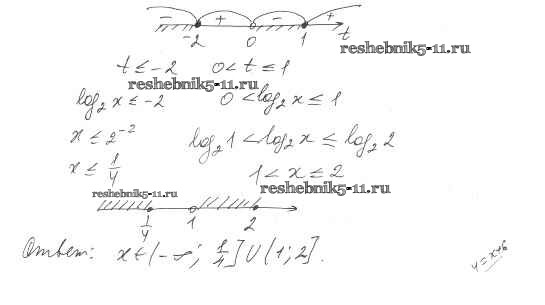 − + − +
-2 0 1 t
reshebnik5-11.ru
t ≤ -2 0 < t ≤ 1
reshebnik5-11.ru
log₂ x ≤ -2 0 < log₂ x ≤ 1
x ≤ 2⁻² log₂ 1 < log₂ x ≤ log₂ 2
x ≤ 1/4 1 < x ≤ 2
reshebnik5-11.ru reshebnik5-11.ru
1/4 1 2
Ответ: x ∈ (-∞; 1/4] ∪ (1; 2].